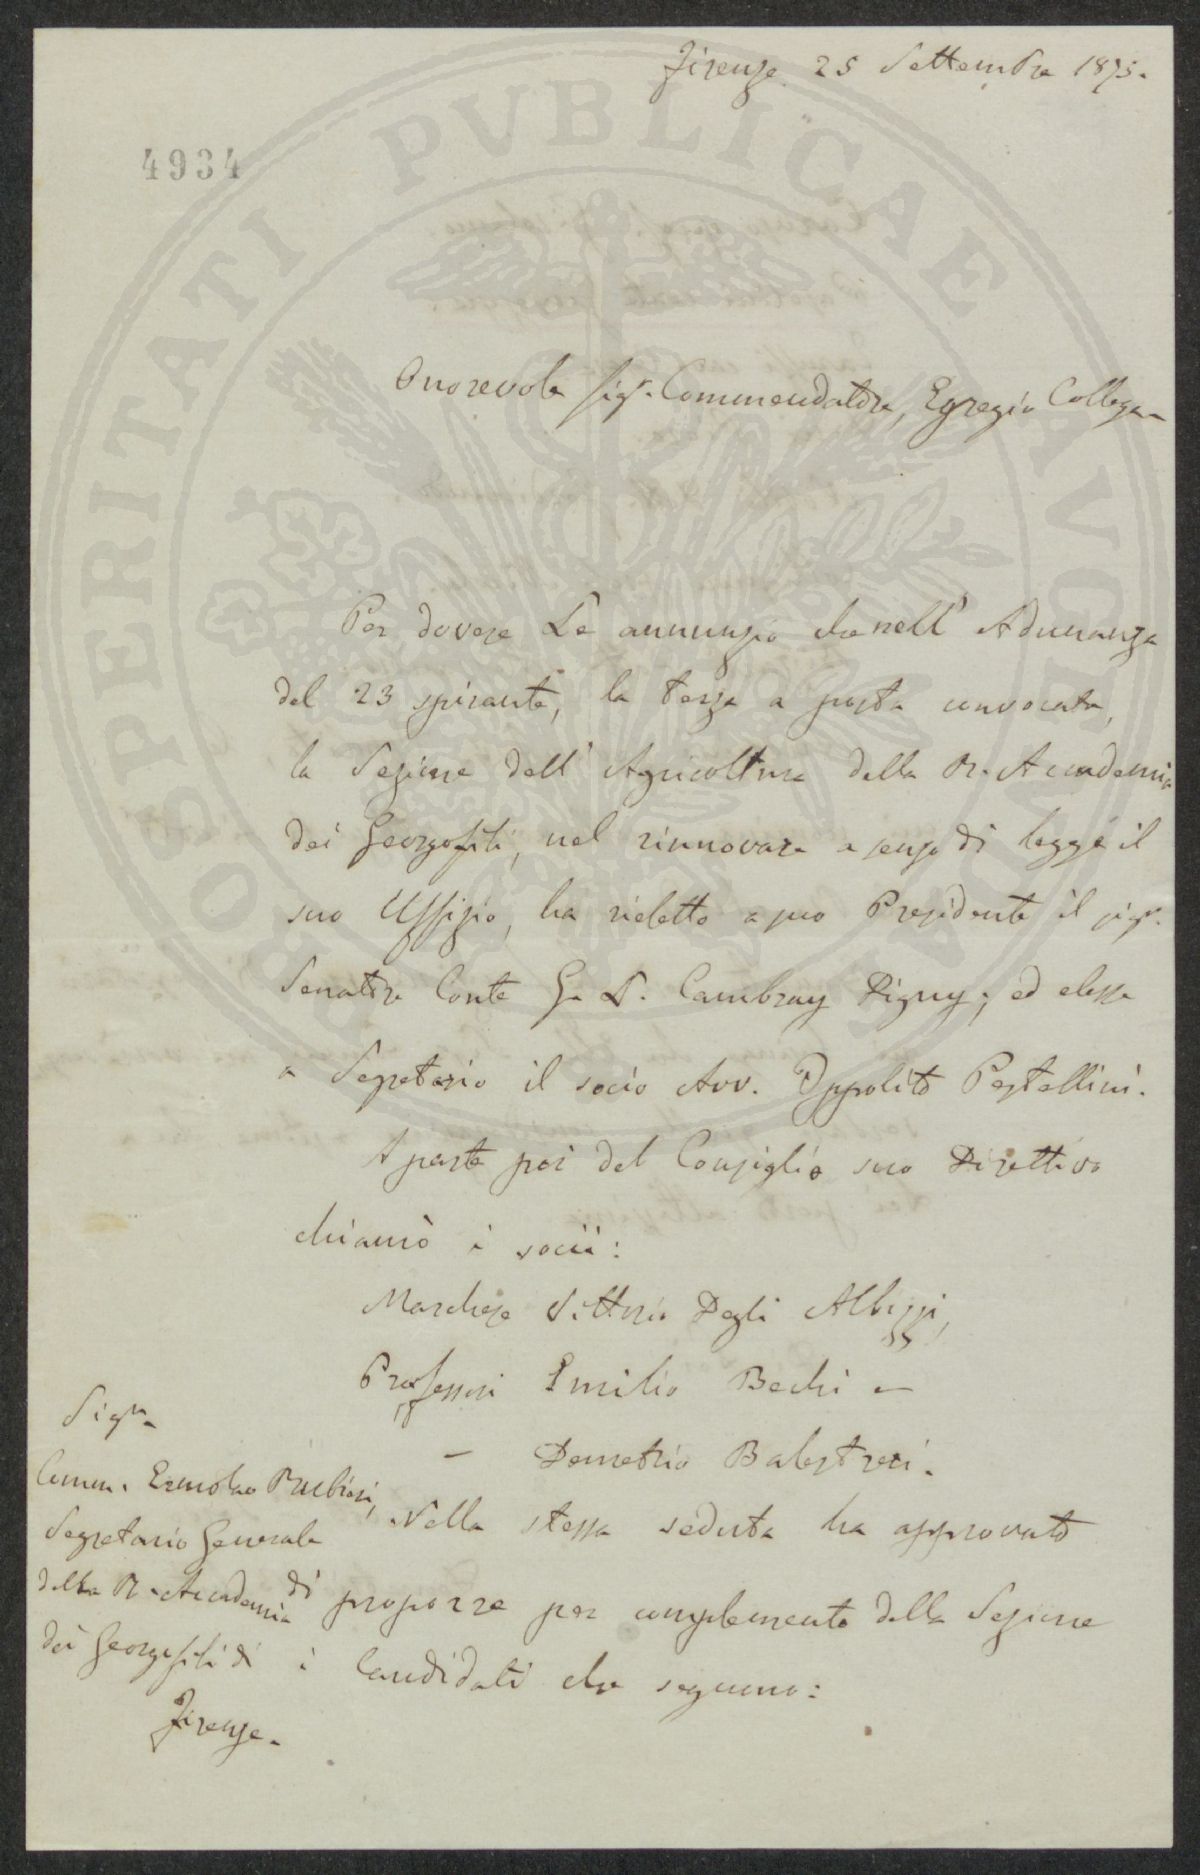 Firenze 25 Settembre 1875.
4934
Onorevole Sigr. Commendatore, Egregio Collega
Per dovere Le annunzio che nell' Adunanza
del 23 spirante, la terza a posta convocata,
la Sezione dell' Agricoltura della R. Accademia
dei Georgofili, nel rinnovare a senso di legge il
suo Uffizio, ha rieletto a suo Presidente il sigr.
Senatore Conte G. D. Cambray Digny; ed elesse
a Segretario il socio Avv. Ippolito Pestellini.
A parte poi del Consiglio suo Direttivo
chiamò i socii:
Marchese Vittorio Degli Albizzi,
Professori Emilio Bechi e
— Demetrio Balestreri.
Nella stessa seduta ha approvato
di proporre per complemento della Sezione
i Candidati che seguono:
Sigr.
Comm. Ermolao Rubieri,
Segretario Generale
della R. Accademia
dei Georgofili di
Firenze.
PROSPERITATI PUBLICAE AUGENDAE